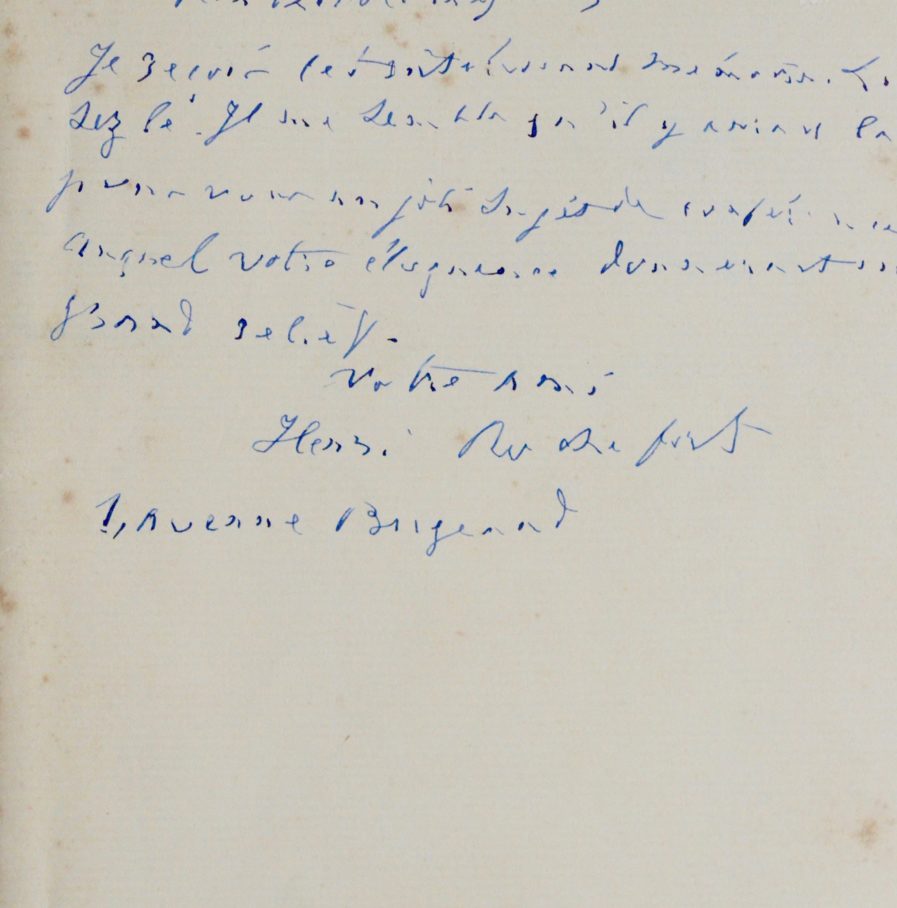 Je reçois cet intéressant mémoire. Li
sez le. Il me semble qu'il y aurait là
pour vous un joli sujet de conféren
auquel votre éloquence donnerait un
grand relief.
Votre ami
Henri Rochefort
1, avenue Bugeaud